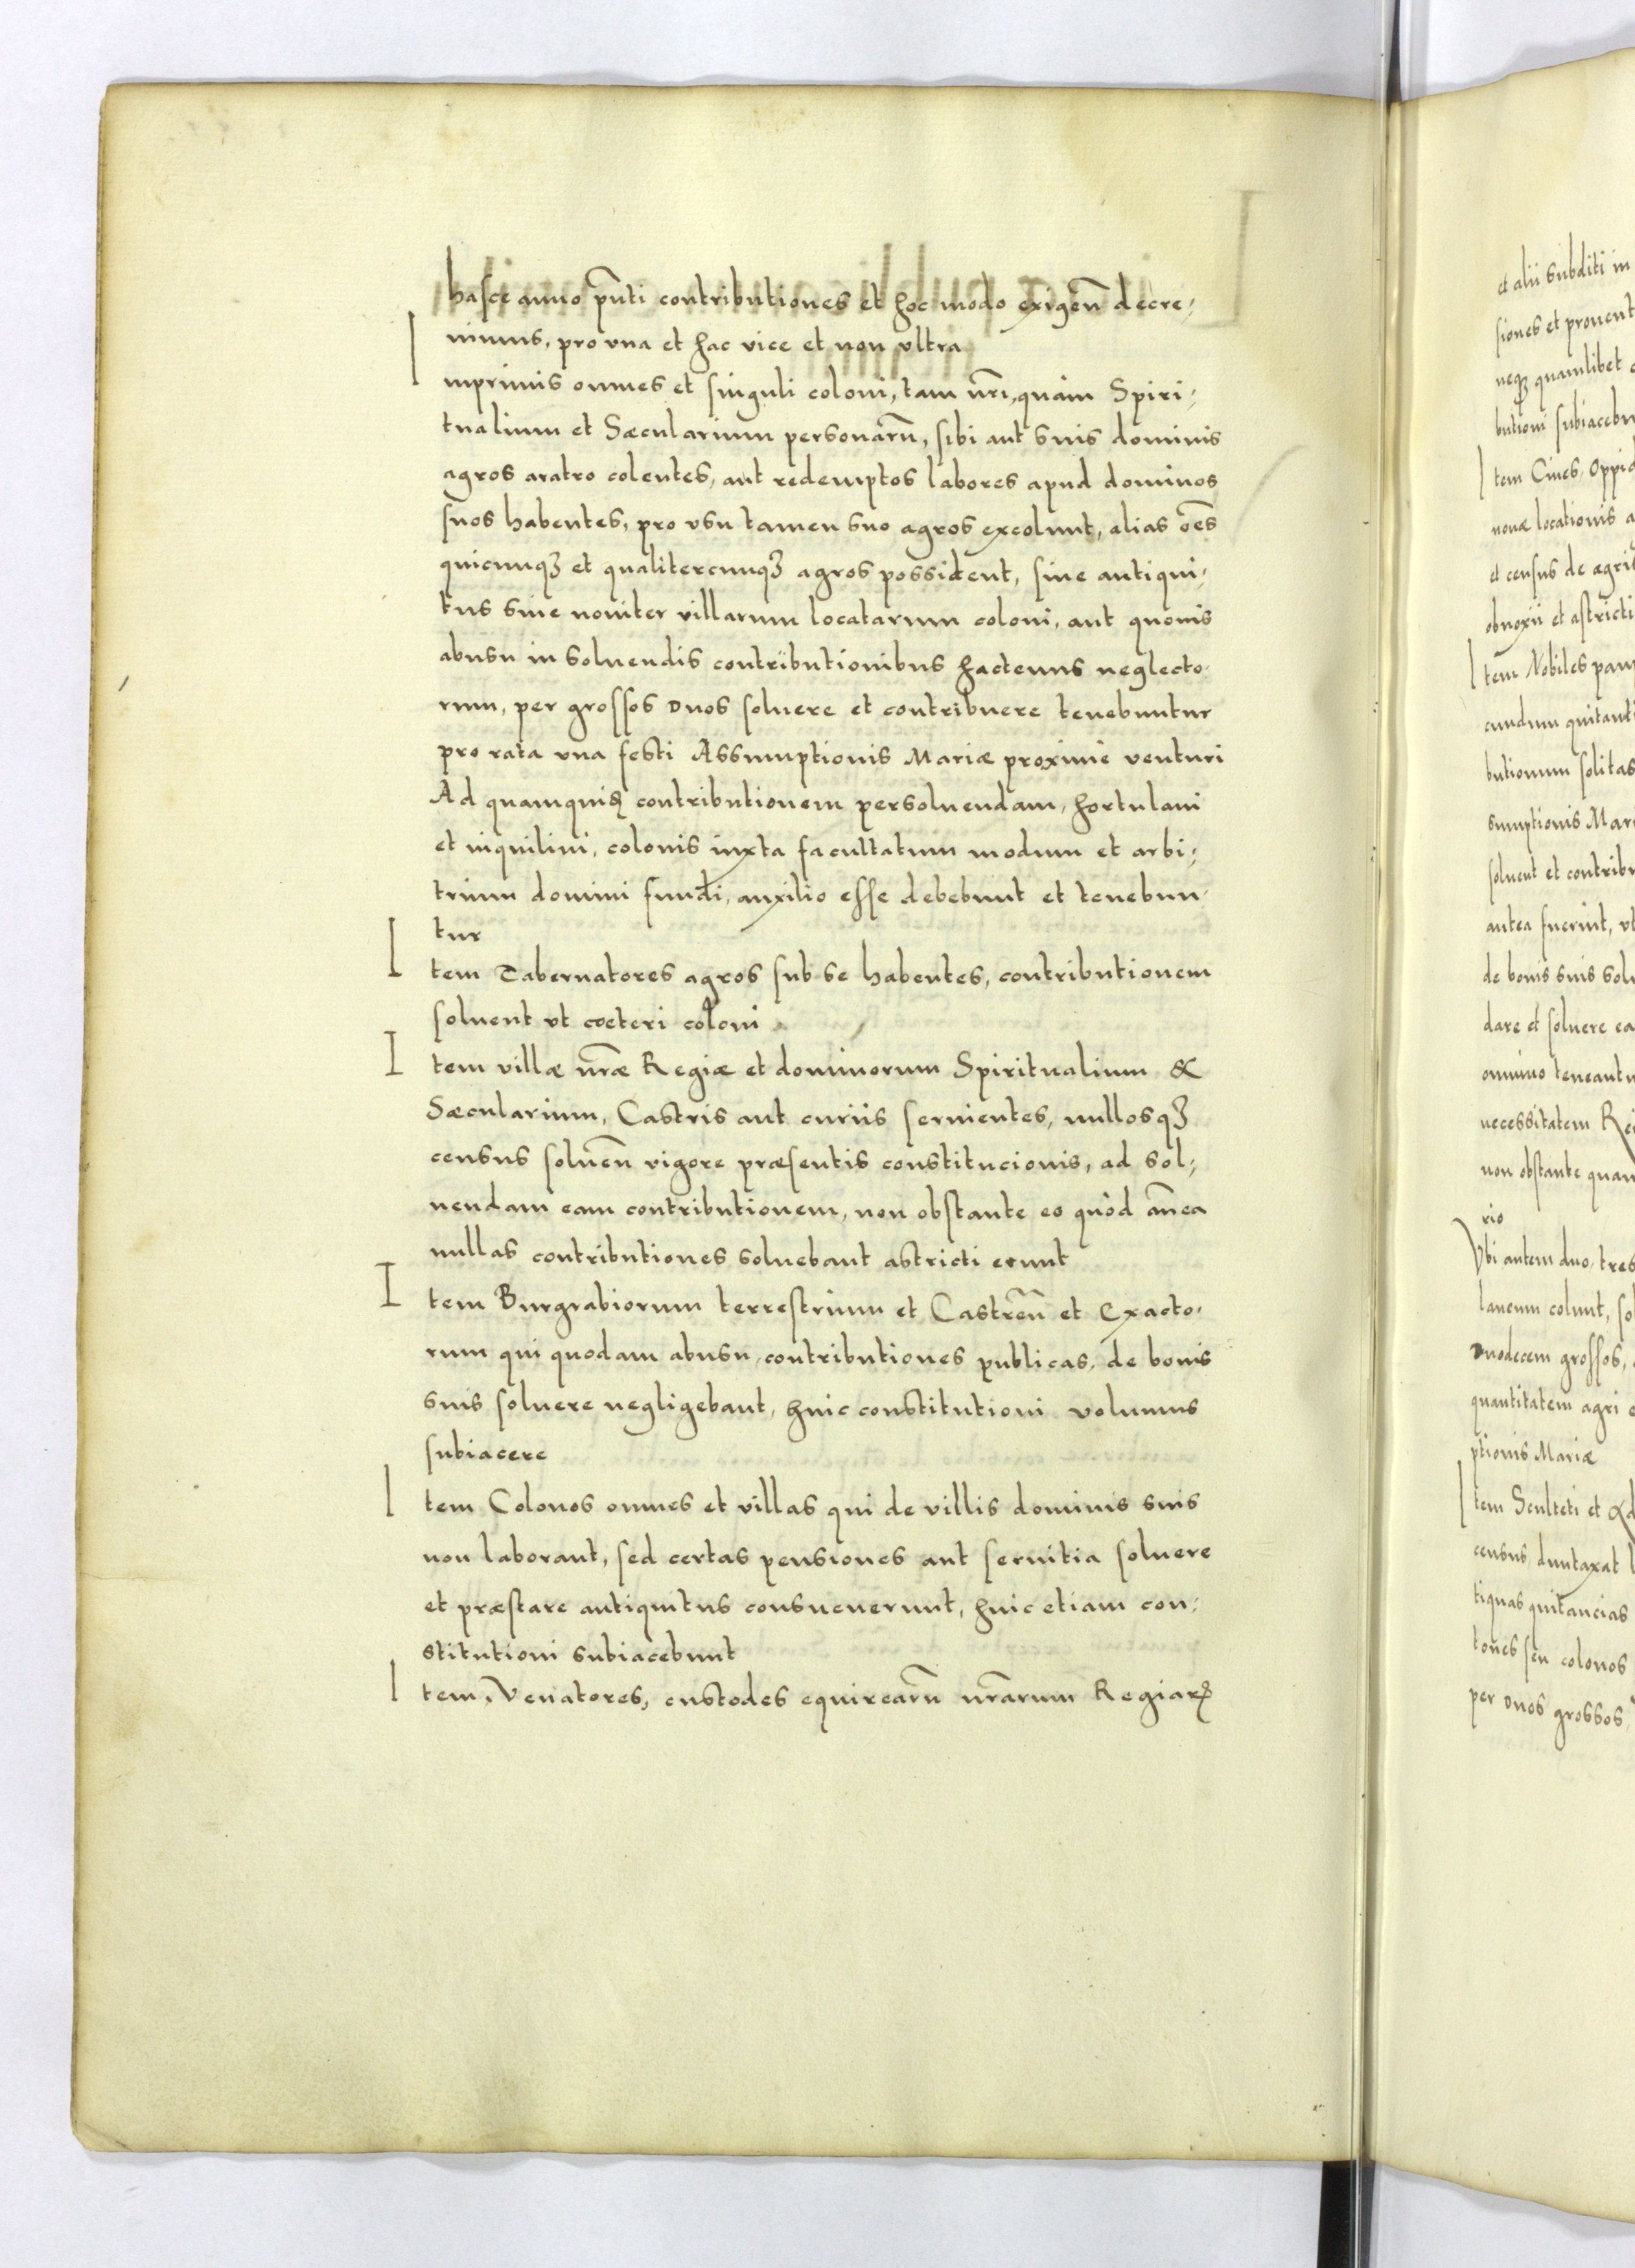 hasce anno p̄nti contributiones et hoc modo exigen̄ decre-
uimus, pro vna et hac vice et non vltra
Inprimis omnes et singuli coloni, tam nr̄i, quàm Spiri-
tualium et Sæcularium personarū, sibi aut suis dominis
agros aratro colentes, aut redemptos labores apud dominos
suos habentes, pro vsu tamen suo agros excolunt, alias oēs
quicunqȝ et qualitercunqȝ agros possident, siue antiqui-
tus siue nouiter villarum locatarum coloni, aut quouis
abusu in soluendis contributionibus hactenus neglecto-
rum, per grossos duos soluere et contribuere tenebuntur
pro rata vna festi Assumptionis Mariæ proximè venturi
Ad quamquiꝫ contributionem persoluendam, hortulani
et inquilini, colonis iuxta facultatum modum et arbi-
trium domini fundi, auxilio esse debebunt et tenebun-
tur
Item Tabernatores agros sub se habentes, contributionem
soluent vt cœteri coloni
Item villæ nr̄æ Regiæ et dominorum Spiritualium &
Sæcularium, Castris aut curiis seruientes, nullosqȝ
census soluen̄ vigore præsentis constitucionis, ad sol-
uendam eam contributionem, non obstante eo quòd an̄ea
nullas contributiones soluebant astricti erunt
Item Burgrabiorum terrestrium et Castren̄ et Exacto-
rum qui quodam abusu, contributiones publicas, de bonis
suis soluere negligebant, huic constitutioni volumus
subiacere
Item Colonos omnes et villas qui de villis dominis suis
non laborant, sed certas pensiones aut seruitia soluere
et præstare antiquitus consueuerunt, huic etiam con-
stitutioni subiacebunt
Item, Venatores, custodes equirearū nr̄arum Regiarꝝ
et alii subditi in
siones et prouent
neqȝ quamlibet
butioni subiacebu
Item Ciues, Oppid
nouæ locationis a
et census de agris
obnoxii et astricti
Item Nobiles pau
cundum quitanti
butionum solitas
sumptionis Mari
soluent et contribu
antea fuerint, vt
de bonis suis solu
dare et soluere ea
omnino teneantu
necessitatem Re
non obstante quam
rio
Vbi autem duo, tres
laneum colunt, so
duodecem grossos,
quantitatem agri
ptionis Mariæ
Item Sculteti et Ad
census, duntaxat l
tiquas quitancias
tones seu colonos
per duos grossos